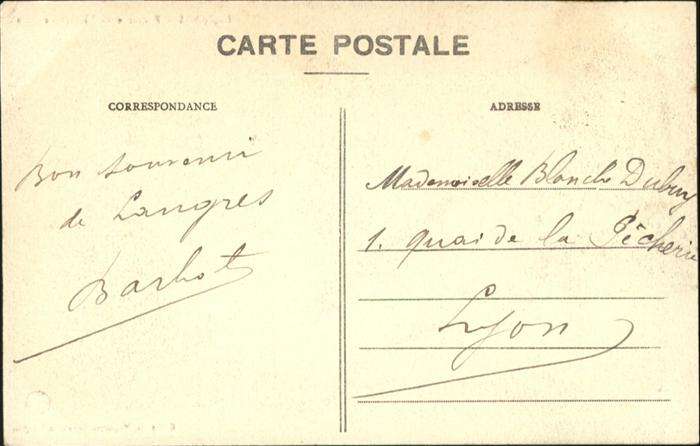 CARTE POSTALE
CORRESPONDANCE
Bon souvenir
de Langres
Barbot
ADRESSE
Mademoiselle Blanche
1. quai de la Pêcherie
Lyon